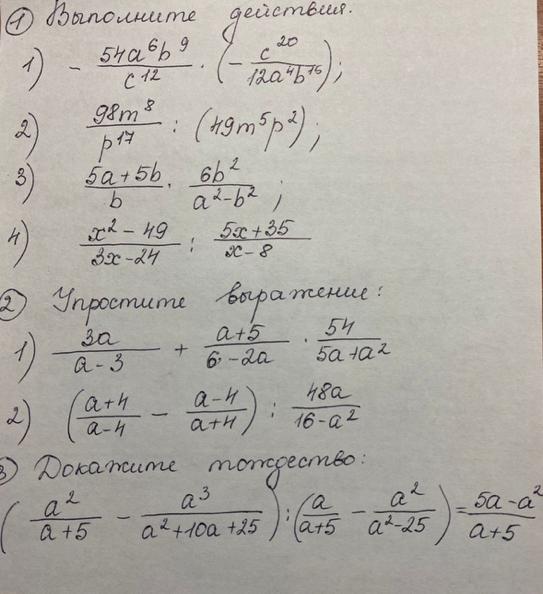 ① Выполните действия.
1) - 54a⁶b⁹/c¹² · (- c²⁰/12a⁴b¹⁶);
2) 98m⁸/p¹⁷ : (49m⁵p²);
3) (5a+5b)/b · 6b²/(a²-b²);
4) (x²-49)/(3x-24) : (5x+35)/(x-8)
② Упростите выражение:
1) 3a/(a-3) + (a+5)/(6-2a) · 54/(5a+a²)
2) ((a+4)/(a-4) - (a-4)/(a+4)) : 48a/(16-a²)
③ Докажите тождество:
(a²/(a+5) - a³/(a²+10a+25)) : (a/(a+5) - a²/(a²-25)) = (5a-a²)/(a+5)